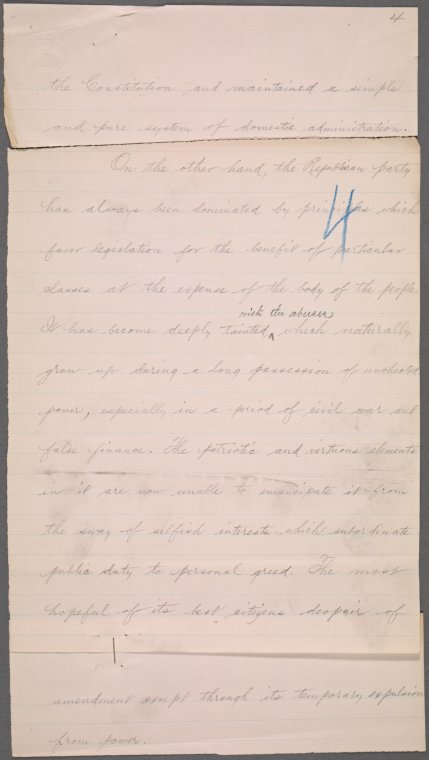 4
the Constitution and maintained a simple
and pure system of domestic administration.
On the other hand, the Republican party
has always been dominated by principles which
4
favor legislation for the benefit of particular
classes at the expense of the body of the people.
with the abuses
It has become deeply tainted ‸ which naturally
grow up during a long possession of unchecked
power, especially in a period of civil war and
false finance. The patriotic and virtuous elements
in it are now unable to emancipate it from
the sway of selfish interests which subordinate
public duty to personal greed. The most
hopeful of its best citizens despair of
amendment except through its temporary expulsion
from power.